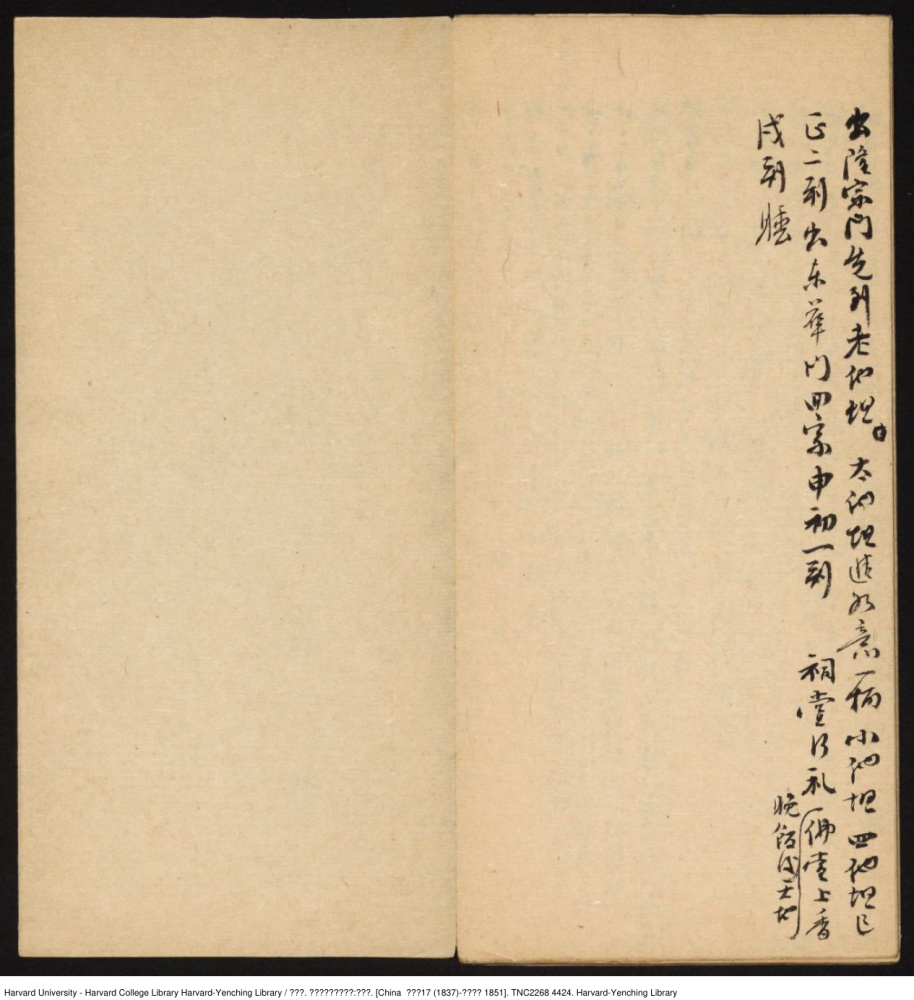 出隆宗門先到老他坦。太他坦進如意一柄小他坦四他坦已
正二刻出东華門回家申初一刻 祠堂行礼佛堂上香
晚飯後天地
戌朝睡
Harvard University - Harvard College Library Harvard-Yenching Library / ???. ?????????:???. [China ???17 (1837)-???? 1851]. TNC2268 4424. Harvard-Yenching Library